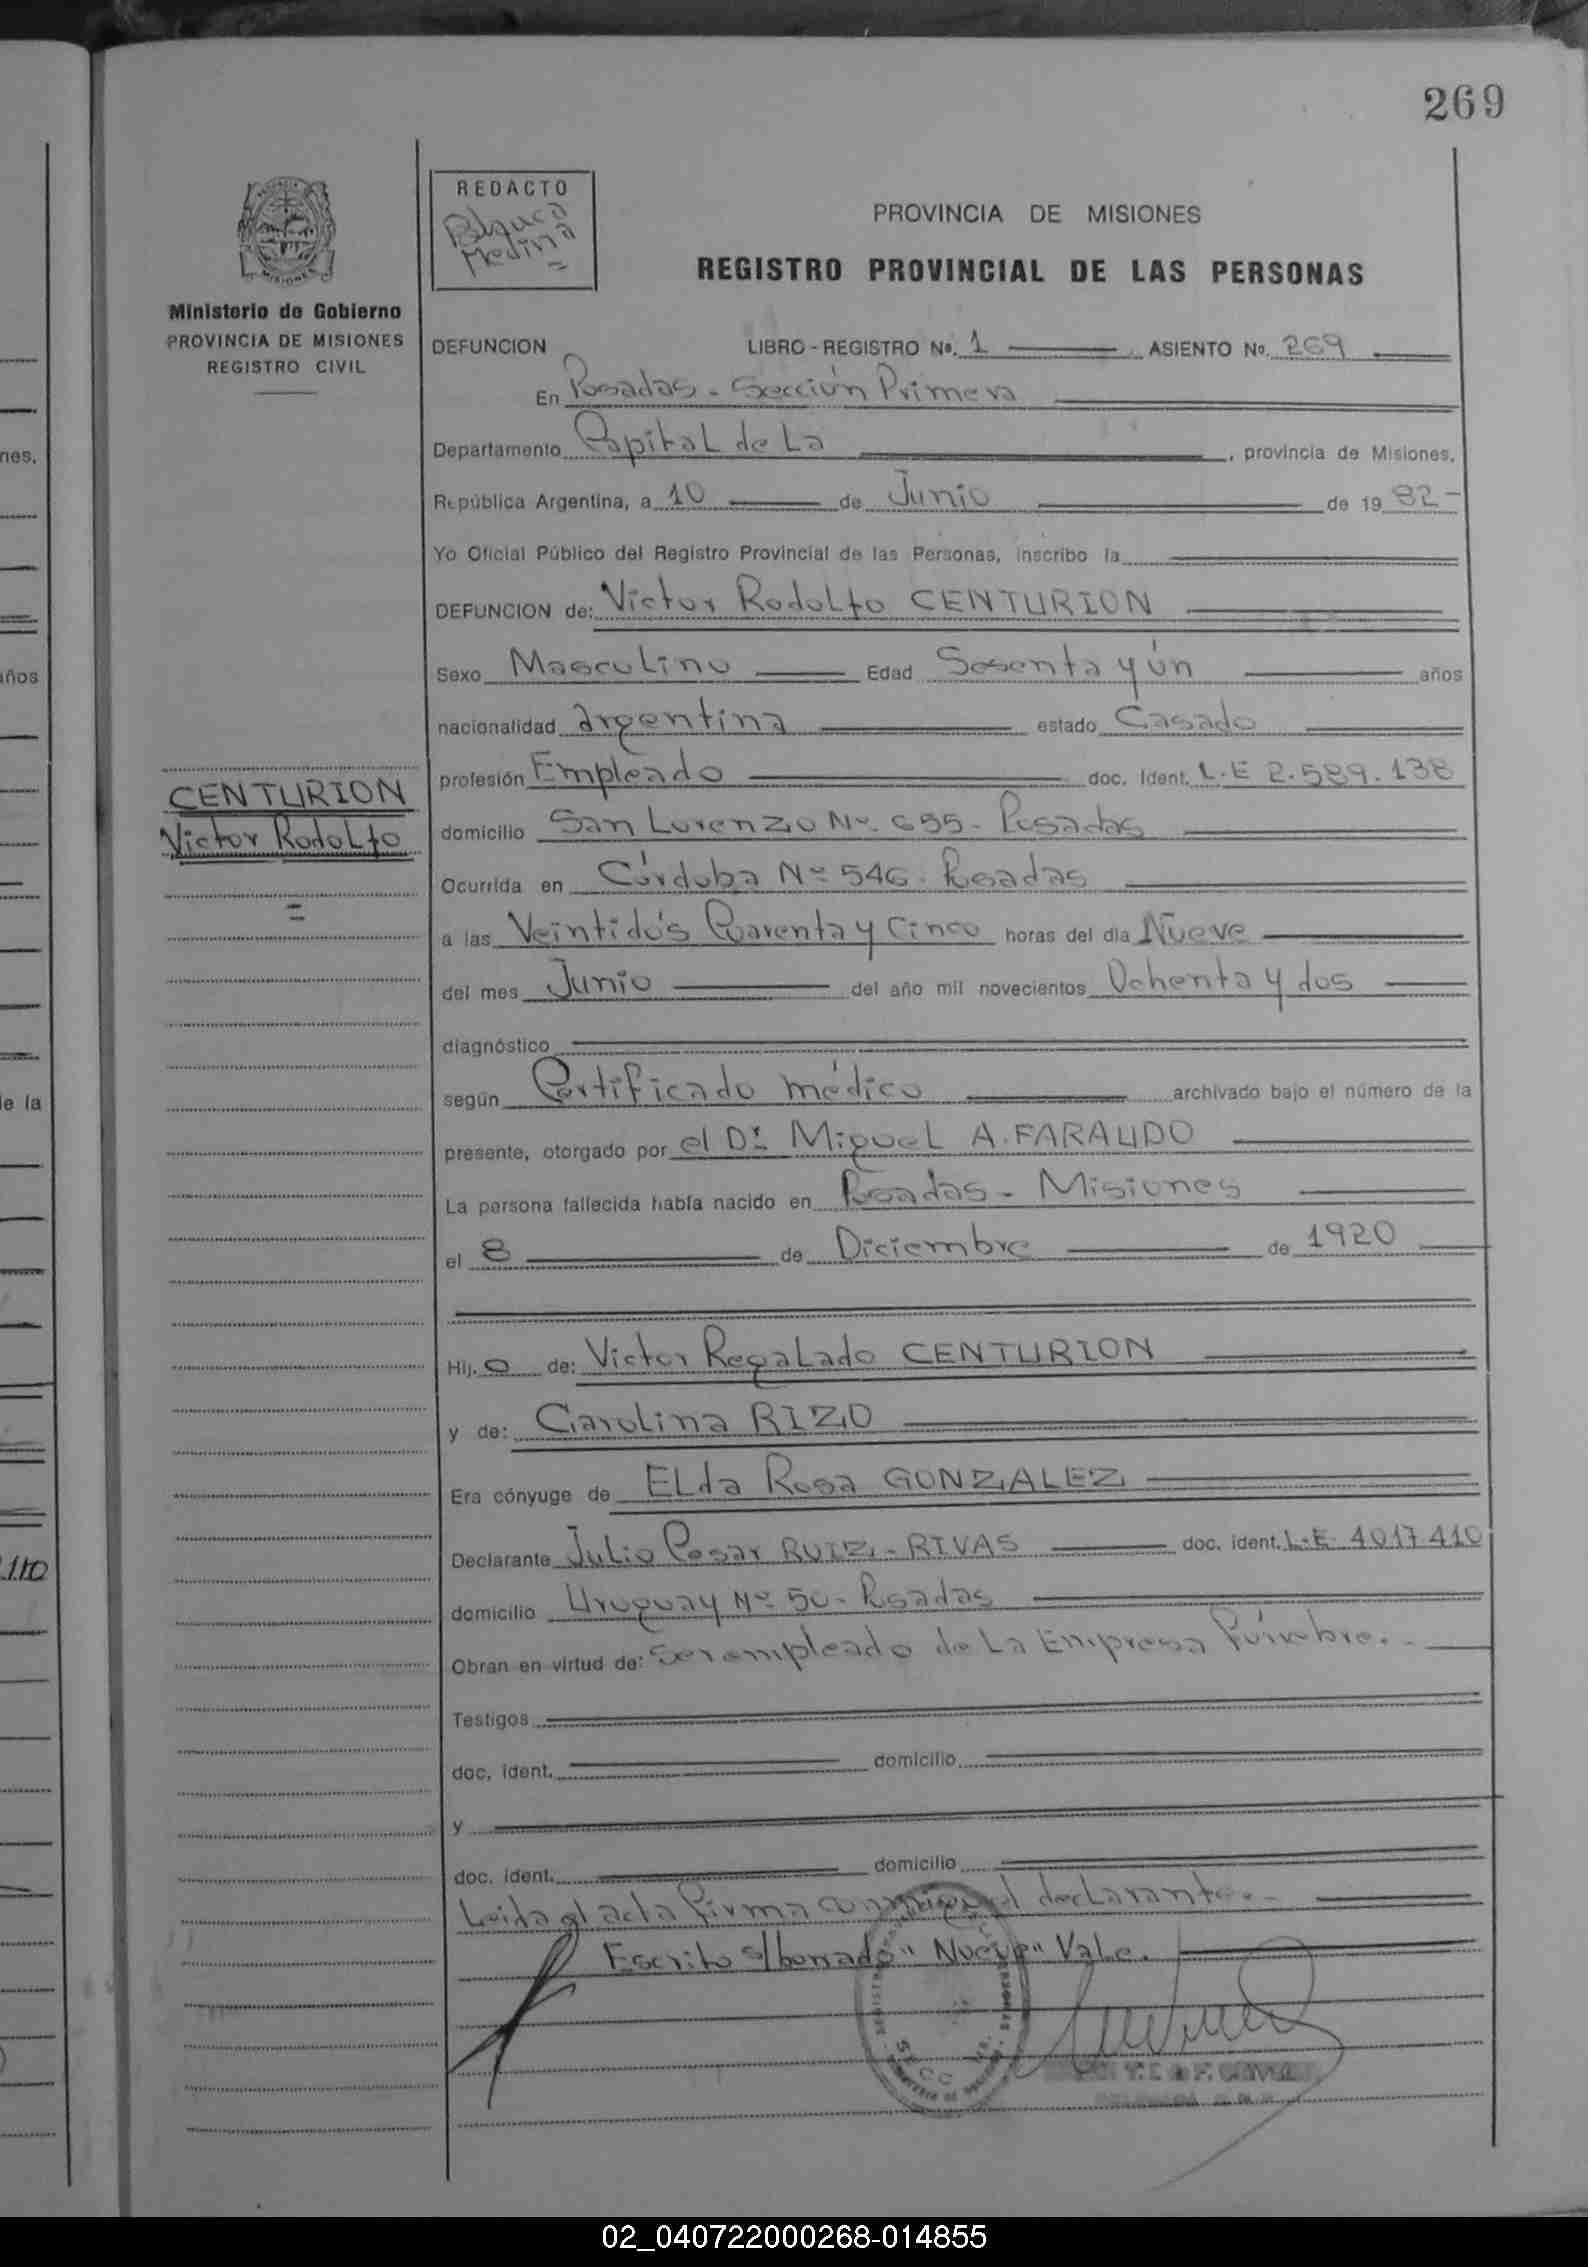 269
REDACTO
Blanca
Medina
=
PROVINCIA DE MISIONES
REGISTRO PROVINCIAL DE LAS PERSONAS
MISIONES
Ministerio de Gobierno
PROVINCIA DE MISIONES
REGISTRO CIVIL
DEFUNCION LIBRO - REGISTRO Nº. 1 ASIENTO Nº. 269
En Posadas - Sección Primera
Departamento Capital de La , provincia de Misiones,
República Argentina, a 10 de Junio de 1982-
Yo Oficial Público del Registro Provincial de las Personas, inscribo la
DEFUNCION de: Victor Rodolfo CENTURION
Sexo Masculino Edad Sesenta y ún años
nacionalidad argentina estado Casado
profesión Empleado doc. ident. L.E 2.589.138
CENTURION
Victor Rodolfo
=
domicilio San Lorenzo Nº 655- Posadas
Ocurrida en Córdoba Nº 546- Posadas
a las Veintidós Cuarenta y Cinco horas del día Nueve
del mes Junio del año mil novecientos Ochenta y dos
diagnóstico
según Certificado médico archivado bajo el número de la
presente, otorgado por el Dr. Miguel A. FARAUDO
La persona fallecida había nacido en Posadas - Misiones
el 8 de Diciembre de 1920
Hij. o de: Victor Regalado CENTURION
y de: Carolina RIZO
Era cónyuge de ELda Rosa GONZALEZ
Declarante Julio Cesar RUIZ - RIVAS doc. ident. L.E. 4017.410
domicilio Uruguay Nº 50- Posadas
Obran en virtud de: Ser empleado de La Empresa Fúnebre.-
Testigos
doc. ident. domicilio
y
doc. ident. domicilio
Leida el acta firma conmigo el declarante.-
Escrito s/borrado "Nueve" Vale.
02_040722000268-014855